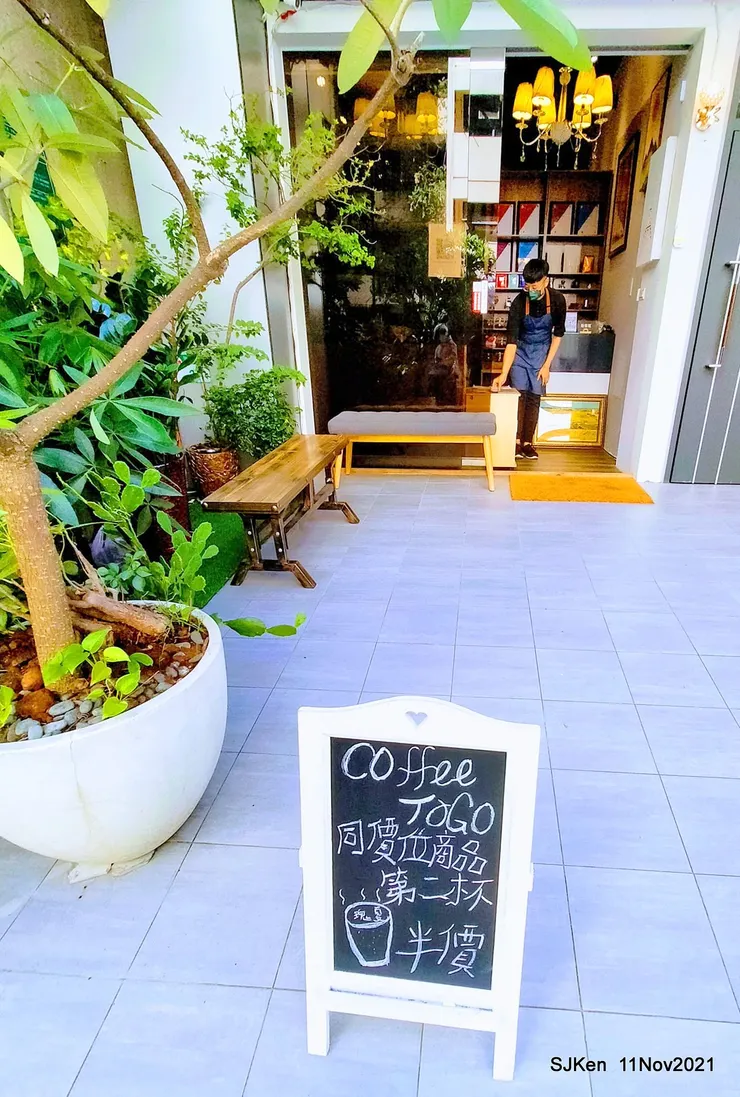 Coffee
ToGo
同價位商品
第二杯
半價
SJKen 11Nov2021